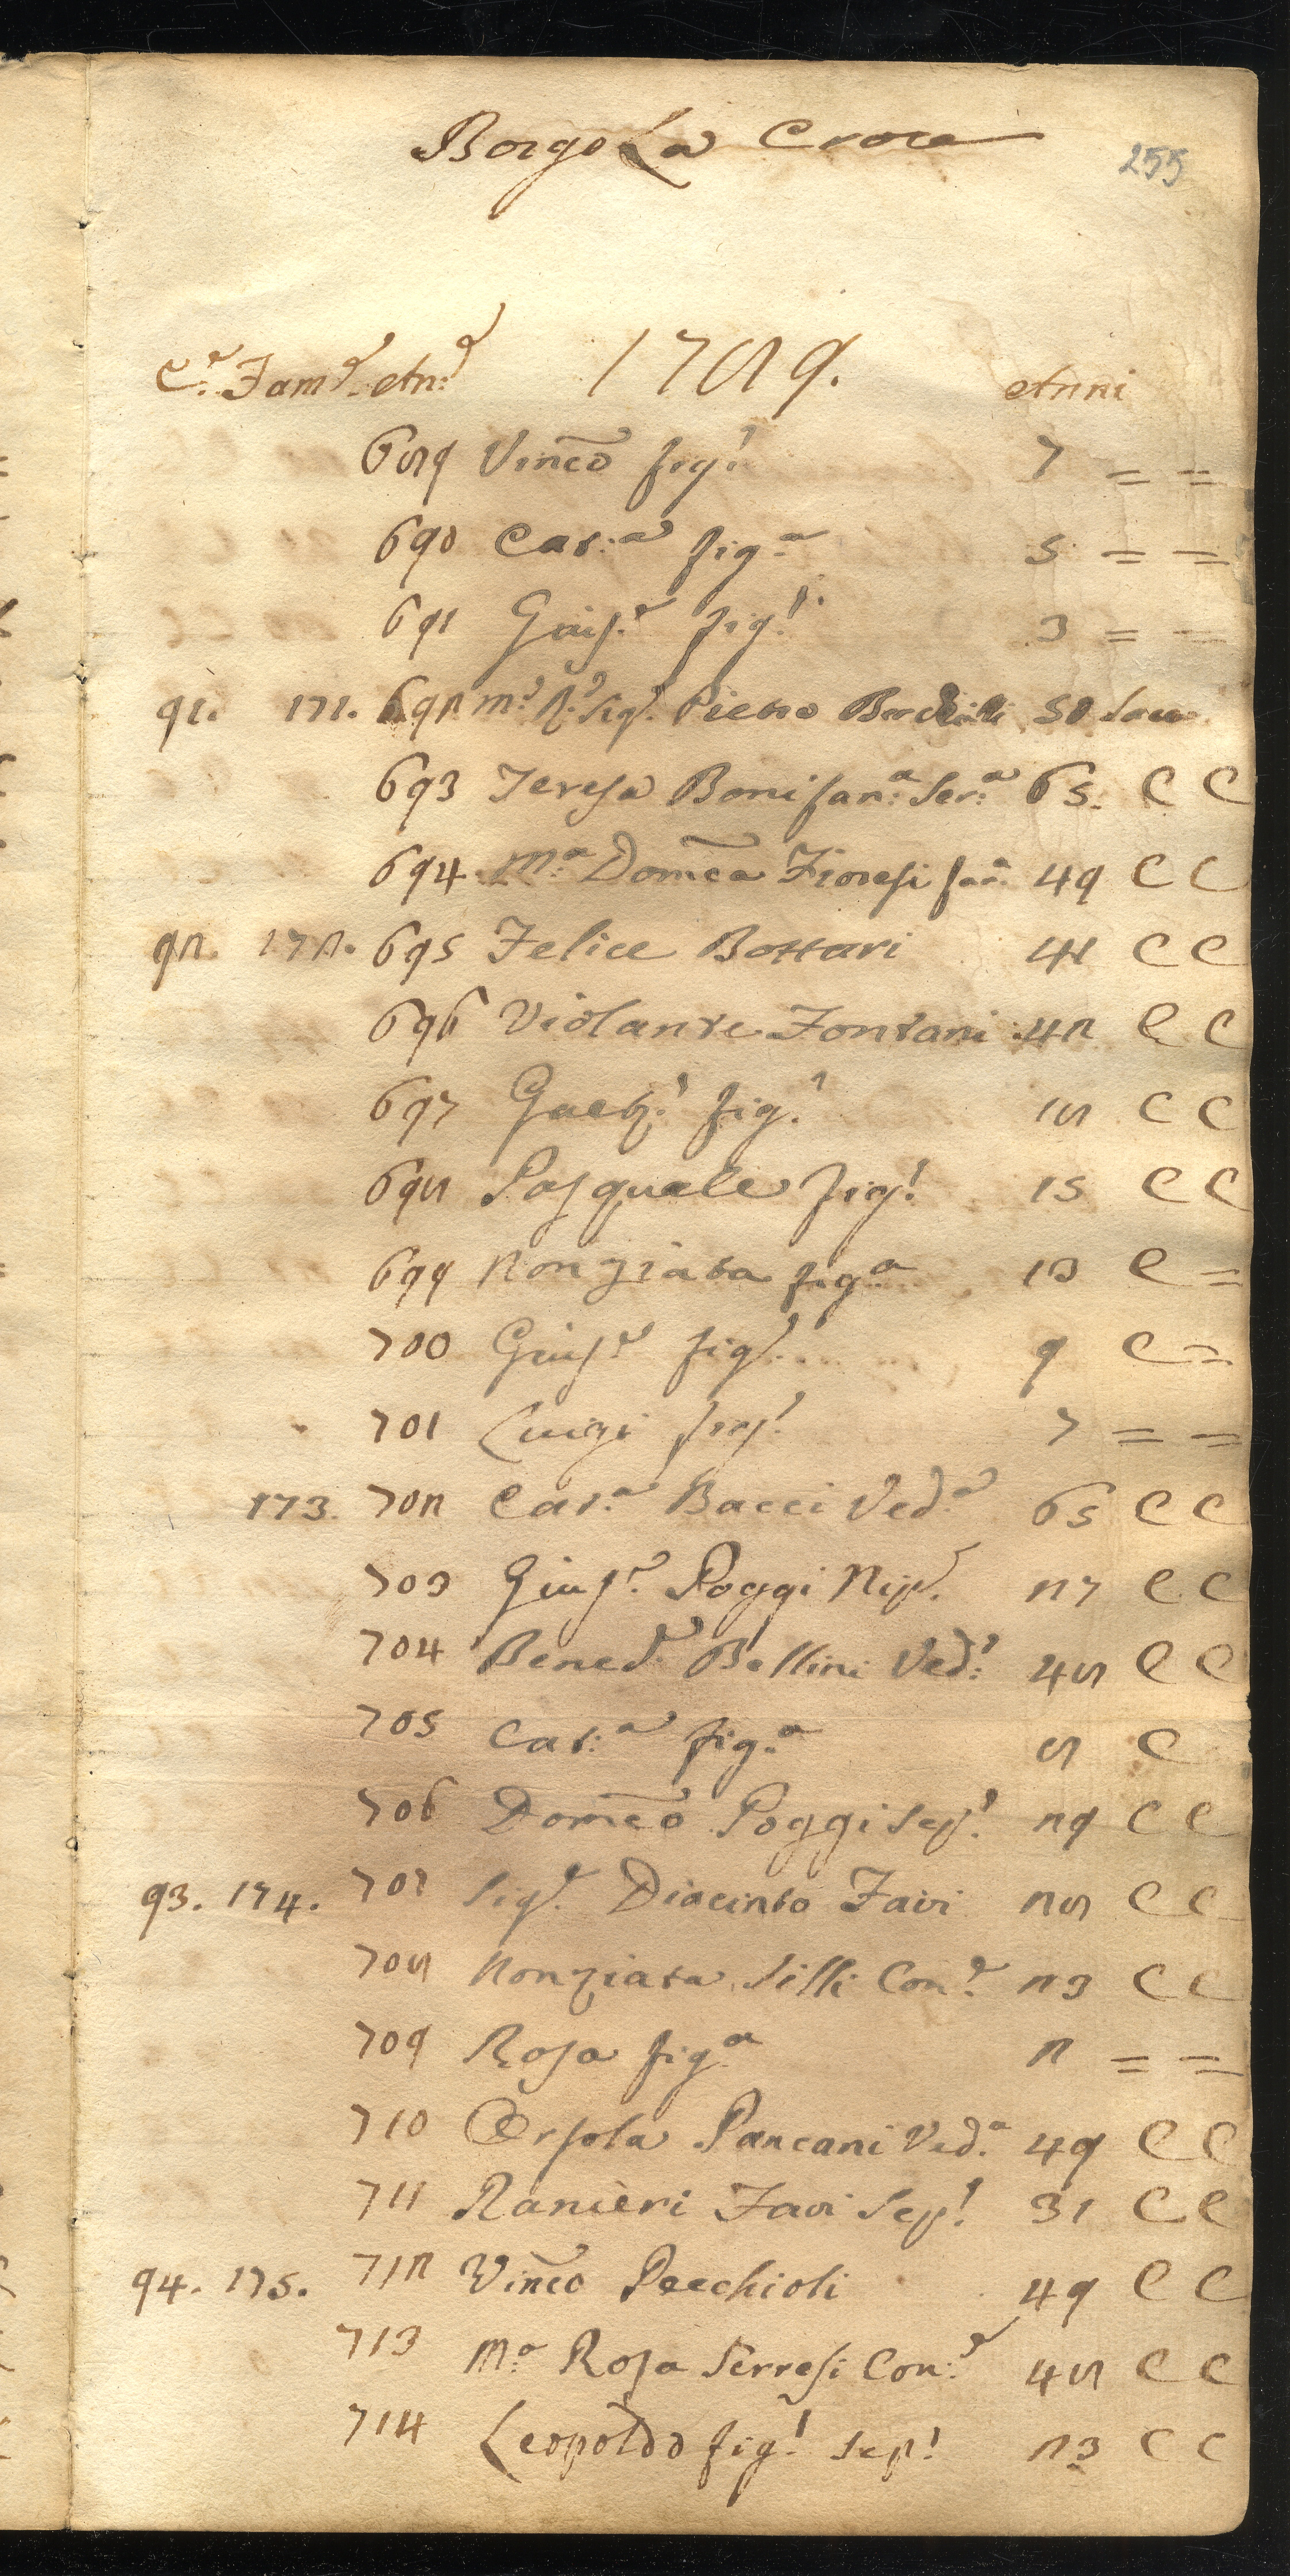 Borgo La Croce
255
C.e Fam.e An.e 1789. Anni
689 Vinc̃o fig.o 7 = =
690 Cat:a fig.a 5 = =
691 Giusp.e fig.o 3 = =
91. 171. 692 m.o R.o Sig.e Pietro 50
693 Teresa Bonifan:a Ser:a 65. C C
694 M:a Dom̃ca Fioresi 49 C C
92. 172. 695 Felice Bottari 41 C C
696 Violante Fontani 42 C C
697 Gaet.o fig.o 18 C C
698 Pasquale fig.o 15 C C
699 Nonziata fig.a 13 C =
700 Giusp.e fig.o 9 C =
701 Luigi fig.o 7 = =
173. 702 Cat.a Bacci Ved.a 65 C C
703 Giusp.e Poggi Nip.e 27 C C
704 Bened.o Bellini Ved:o 48 C C
705 Cat:a fig.a 8 C
706 Dom̃co Poggi Sep.o 29 C C
93. 174. 707 Sig.e Diacinto Favi 28 C C
708 Nonziata Silli Con.e 23 C C
709 Rosa fig.a 2 = =
710 Orsola Pancani Ved.a 49 C C
711 Ranieri Favi Sep.o 31 C C
94. 175. 712 Vinc̃o Pecchioli 49 C C
713 M:a Rosa Serresi Con:e 48 C C
714 Leopoldo fig.o Sep.o 23 C C